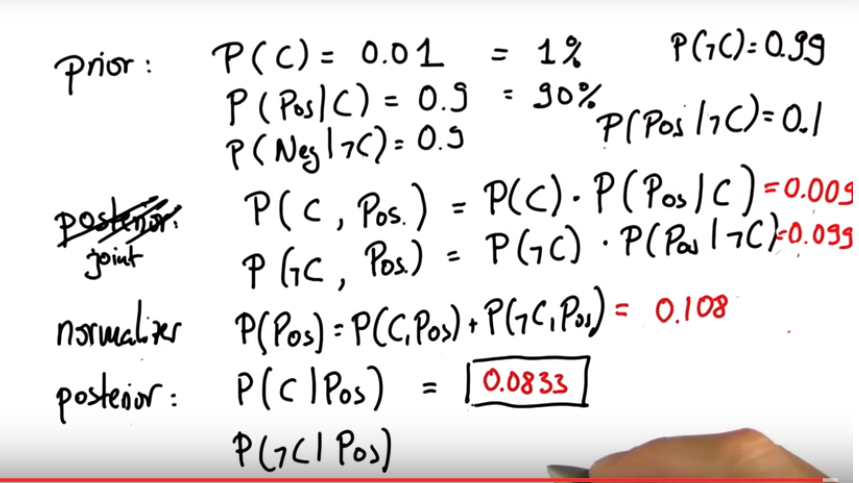 prior: P(C) = 0.01 = 1% P(¬C)=0.99
P(Pos|C) = 0.9 = 90%
P(Neg|¬C)=0.9 P(Pos|¬C)=0.1
posterior: P(C, Pos.) = P(C)·P(Pos|C)=0.009
joint P(¬C, Pos.) = P(¬C)·P(Pos|¬C)=0.099
normalizer P(Pos)=P(C,Pos)+P(¬C,Pos)= 0.108
posterior: P(C|Pos) = 0.0833
P(¬C|Pos)